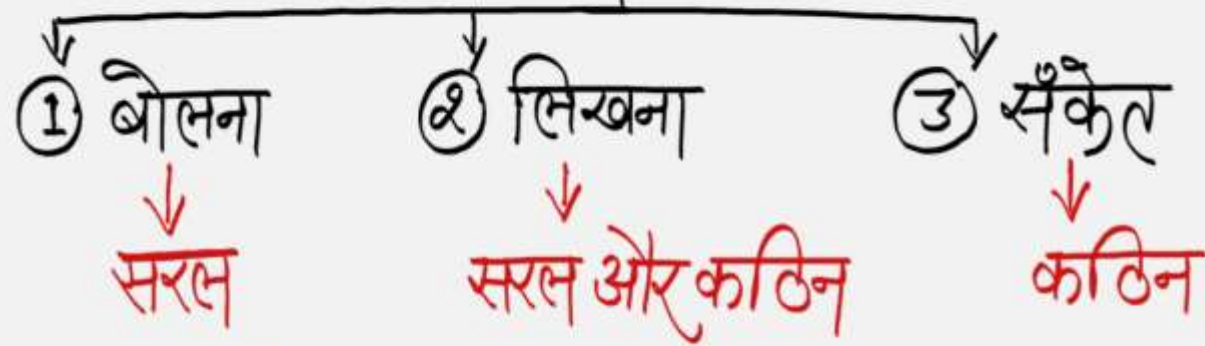 ① बोलना ② लिखना ③ सँकेत
सरल सरल और कठिन कठिन